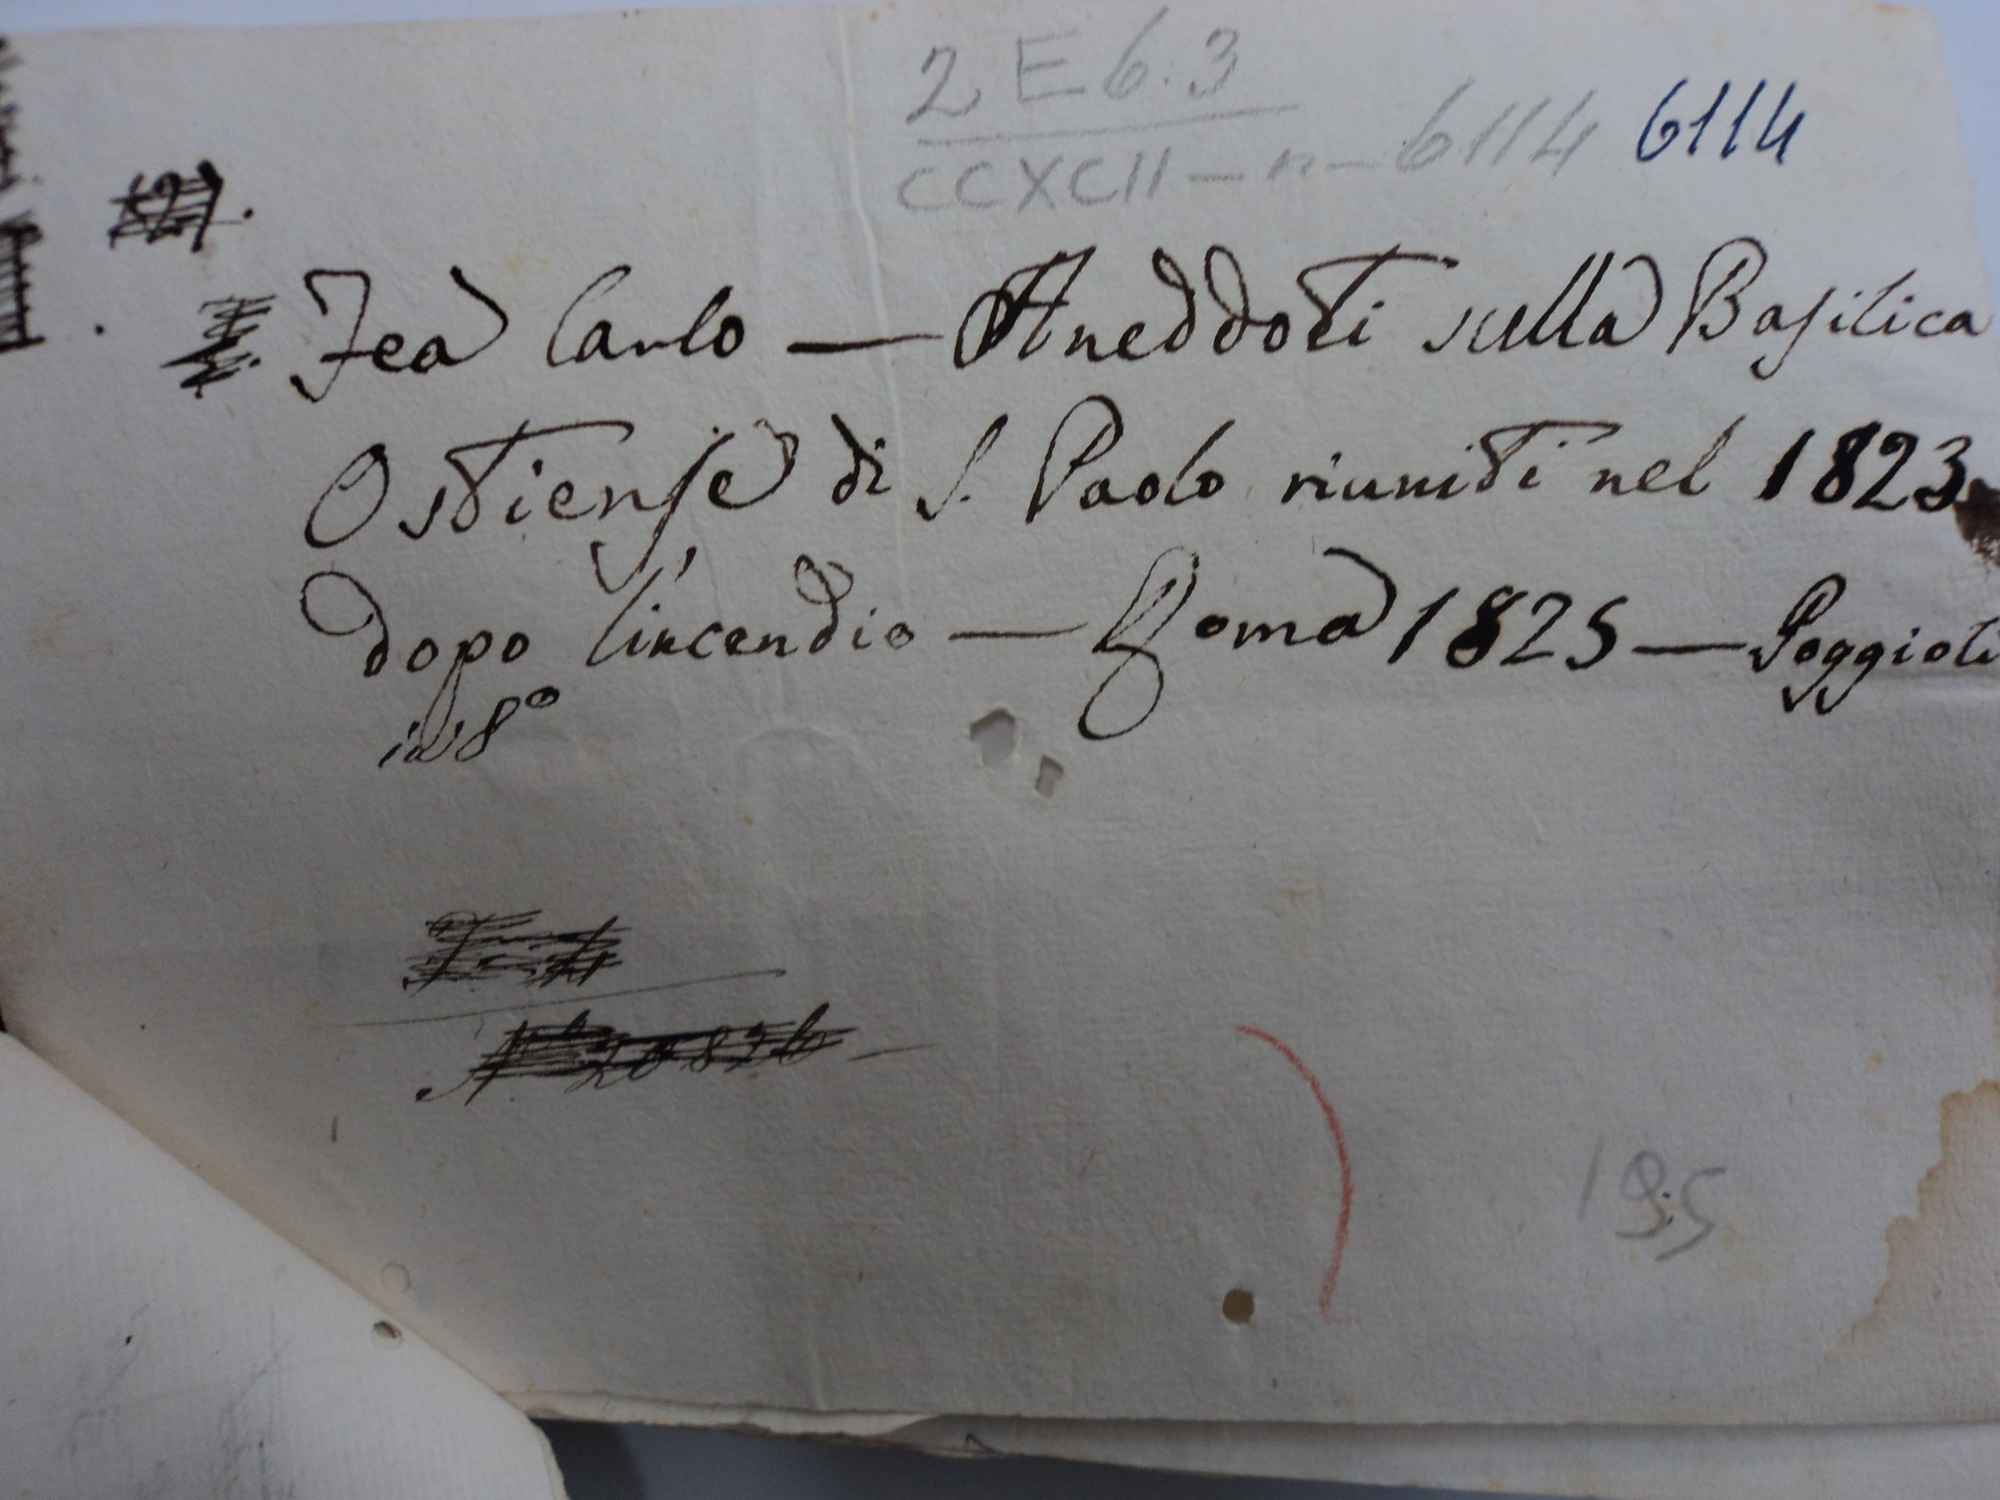 2 E 6.3
CCXCII – n – 6114 6114
Fea Carlo — Aneddoti sulla Basilica
Ostiense di S. Paolo riuniti nel 1823
dopo l'incendio — Roma 1825 — Poggioli
in 8°
195